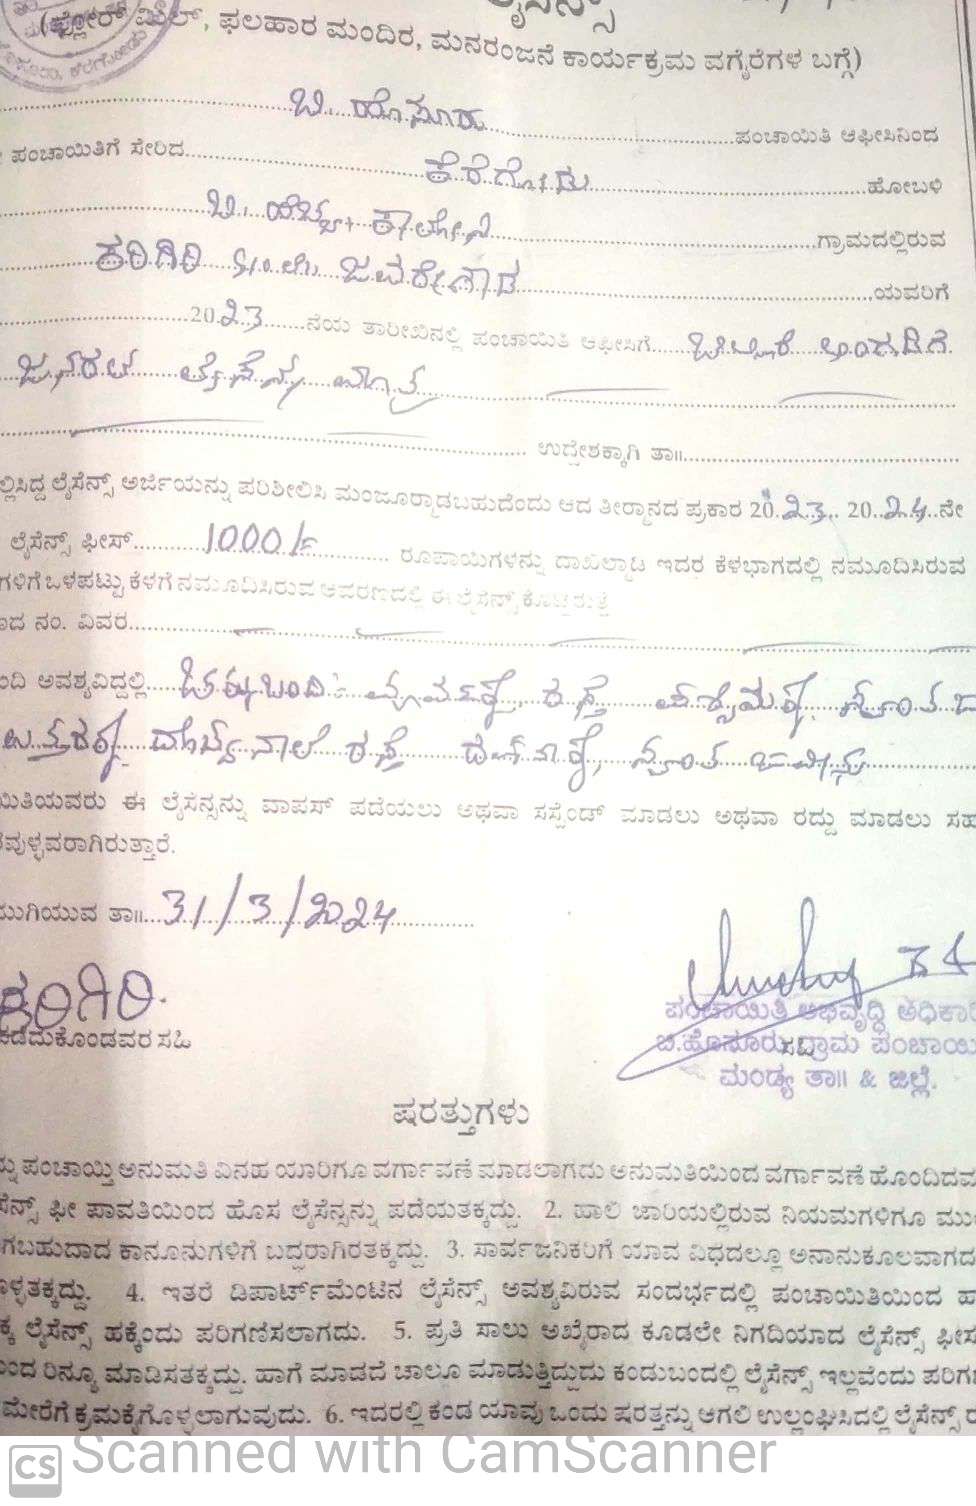 ಲೈಸೆನ್ಸ್
(ಫ್ಲೋರ್ ಮಿಲ್, ಫಲಹಾರ ಮಂದಿರ, ಮನರಂಜನೆ ಕಾರ್ಯಕ್ರಮ ವಗೈರೆಗಳ ಬಗ್ಗೆ)
ಬಿ. ಹೊಸೂರು ಪಂಚಾಯಿತಿ ಆಫೀಸಿನಿಂದ
ಪಂಚಾಯಿತಿಗೆ ಸೇರಿದ ಕೆರೆಗೋಡು ಹೋಬಳಿ
ಬಿ. ಹೆಚ್ಚ್. ಕಾಲೋನಿ ಗ್ರಾಮದಲ್ಲಿರುವ
ಕರಿಗಿರಿ S/o ಲೇ ಜವರೇಗೌಡ ಯವರಿಗೆ
2023 ನೆಯ ತಾರೀಖಿನಲ್ಲಿ ಪಂಚಾಯಿತಿ ಆಫೀಸಿಗೆ ಚಿಲ್ಲರೆ ಅಂಗಡಿಗೆ
ಜನರಲ್ ಲೈಸೆನ್ಸ್ ಮಾತ್ರ
ಉದ್ದೇಶಕ್ಕಾಗಿ ತಾ॥
ಲ್ಲಿಸಿದ್ದ ಲೈಸೆನ್ಸ್ ಅರ್ಜಿಯನ್ನು ಪರಿಶೀಲಿಸಿ ಮಂಜೂರ್‍ಮಾಡಬಹುದೆಂದು ಆದ ತೀರ್ಮಾನದ ಪ್ರಕಾರ 2023 2024 ನೇ
ಲೈಸೆನ್ಸ್ ಫೀಸ್ 1000/- ರೂಪಾಯಿಗಳನ್ನು ದಾಖಲ್ಮಾಡಿ ಇದರ ಕೆಳಭಾಗದಲ್ಲಿ ನಮೂದಿಸಿರುವ
ಗಳಿಗೆ ಒಳಪಟ್ಟು ಕೆಳಗೆ ನಮೂದಿಸಿರುವ ಆವರಣದಲ್ಲಿ ಈ ಲೈಸೆನ್ಸ್ ಕೊಟ್ಟಿರುತ್ತೆ
ನಂ. ವಿವರ
ಅವಶ್ಯವಿದ್ದಲ್ಲಿ ಚಕ್ಕುಬಂದಿ :- ಪೂರ್ವಕ್ಕೆ, ರಸ್ತೆ ಪಶ್ಚಿಮಕ್ಕೆ, ಸ್ವಂತ
ಉತ್ತರಕ್ಕೆ ನಾಲೆ ರಸ್ತೆ ದಕ್ಷಿಣಕ್ಕೆ, ಸ್ವಂತ ಜಮೀನು
ಯಿತಿಯವರು ಈ ಲೈಸೆನ್ಸನ್ನು ವಾಪಸ್ ಪಡೆಯಲು ಅಥವಾ ಸಸ್ಪೆಂಡ್ ಮಾಡಲು ಅಥವಾ ರದ್ದು ಮಾಡಲು ಸಹ
ವುಳ್ಳವರಾಗಿರುತ್ತಾರೆ.
ಮುಗಿಯುವ ತಾ॥ 31/3/2024
ಕರಿಗಿರಿ
ಪಡೆದುಕೊಂಡವರ ಸಹಿ
ಪಂಚಾಯಿತಿ ಅಭಿವೃದ್ಧಿ ಅಧಿಕಾರಿ
ಬಿ.ಹೊಸೂರು ಗ್ರಾಮ ಪಂಚಾಯಿ
ಮಂಡ್ಯ ತಾ॥ & ಜಿಲ್ಲೆ.
ಷರತ್ತುಗಳು
ನ್ನು ಪಂಚಾಯ್ತಿ ಅನುಮತಿ ವಿನಹ ಯಾರಿಗೂ ವರ್ಗಾವಣೆ ಮಾಡಲಾಗದು ಅನುಮತಿಯಿಂದ ವರ್ಗಾವಣೆ ಹೊಂದಿದವ
ಸೆನ್ಸ್ ಫೀ ಪಾವತಿಯಿಂದ ಹೊಸ ಲೈಸೆನ್ಸನ್ನು ಪಡೆಯತಕ್ಕದ್ದು. 2. ಹಾಲಿ ಜಾರಿಯಲ್ಲಿರುವ ನಿಯಮಗಳಿಗೂ ಮುಂ
ಗಬಹುದಾದ ಕಾನೂನುಗಳಿಗೆ ಬದ್ಧರಾಗಿರತಕ್ಕದ್ದು. 3. ಸಾರ್ವಜನಿಕರಿಗೆ ಯಾವ ವಿಧದಲ್ಲೂ ಅನಾನುಕೂಲವಾಗದ
ಳ್ಳತಕ್ಕದ್ದು. 4. ಇತರೆ ಡಿಪಾರ್ಟ್‌ಮೆಂಟಿನ ಲೈಸೆನ್ಸ್ ಅವಶ್ಯವಿರುವ ಸಂದರ್ಭದಲ್ಲಿ ಪಂಚಾಯಿತಿಯಿಂದ ಹಾ
ಕ್ಕ ಲೈಸೆನ್ಸ್ ಹಕ್ಕೆಂದು ಪರಿಗಣಿಸಲಾಗದು. 5. ಪ್ರತಿ ಸಾಲು ಅಖೈರಾದ ಕೂಡಲೇ ನಿಗದಿಯಾದ ಲೈಸೆನ್ಸ್ ಫೀಸ
ಂದ ರಿನ್ಯೂ ಮಾಡಿಸತಕ್ಕದ್ದು. ಹಾಗೆ ಮಾಡದೆ ಚಾಲೂ ಮಾಡುತ್ತಿದ್ದುದು ಕಂಡುಬಂದಲ್ಲಿ ಲೈಸೆನ್ಸ್ ಇಲ್ಲವೆಂದು ಪರಿಗಣಿ
ಮೇರೆಗೆ ಕ್ರಮಕೈಗೊಳ್ಳಲಾಗುವುದು. 6. ಇದರಲ್ಲಿ ಕಂಡ ಯಾವುದೊಂದು ಷರತ್ತನ್ನು ಆಗಲಿ ಉಲ್ಲಂಘಿಸಿದಲ್ಲಿ ಲೈಸೆನ್ಸ್ ರ
CS Scanned with CamScanner